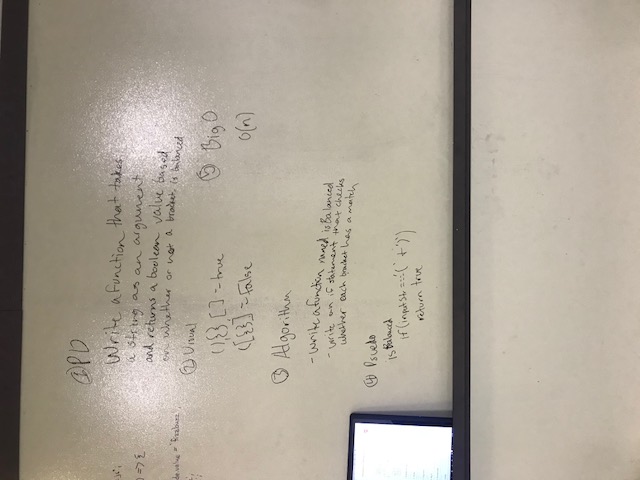 ① PD
Write a function that takes
a string as an argument
and returns a boolean value based
on whether or not a bracket is balanced
② Visual
(){}[] = true
([{}] = False
③ Algorithm
- write a function named isBalanced
- write an if statement that checks
whether each bracket has a match
④ Psuedo
isBalanced
if (inputStr === '(' + ')')
return true
⑤ Big O
O(n)
) => {
de.value = 'fizzbuzz'